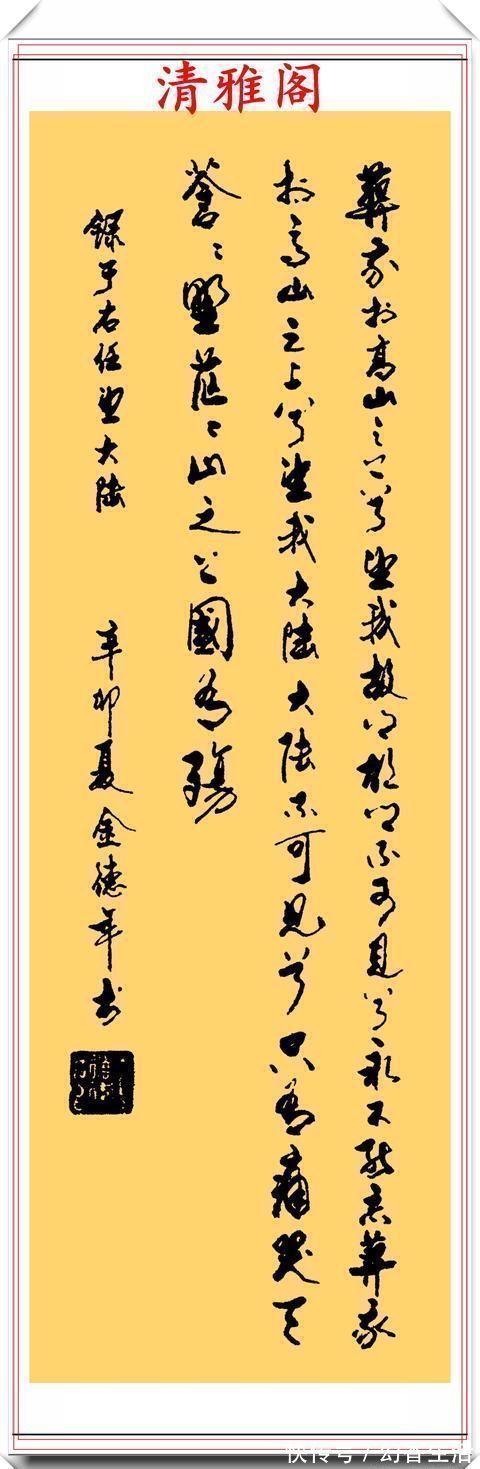 清雅阁
葬我於高山之上兮望我故鄉故鄉不可見兮永不能忘葬我
於高山之上兮望我大陸大陸不可見兮只有痛哭天
蒼々野茫々山之上國有殤
錄于右任望大陸 辛卯夏金德年书
快传号/幻香生活